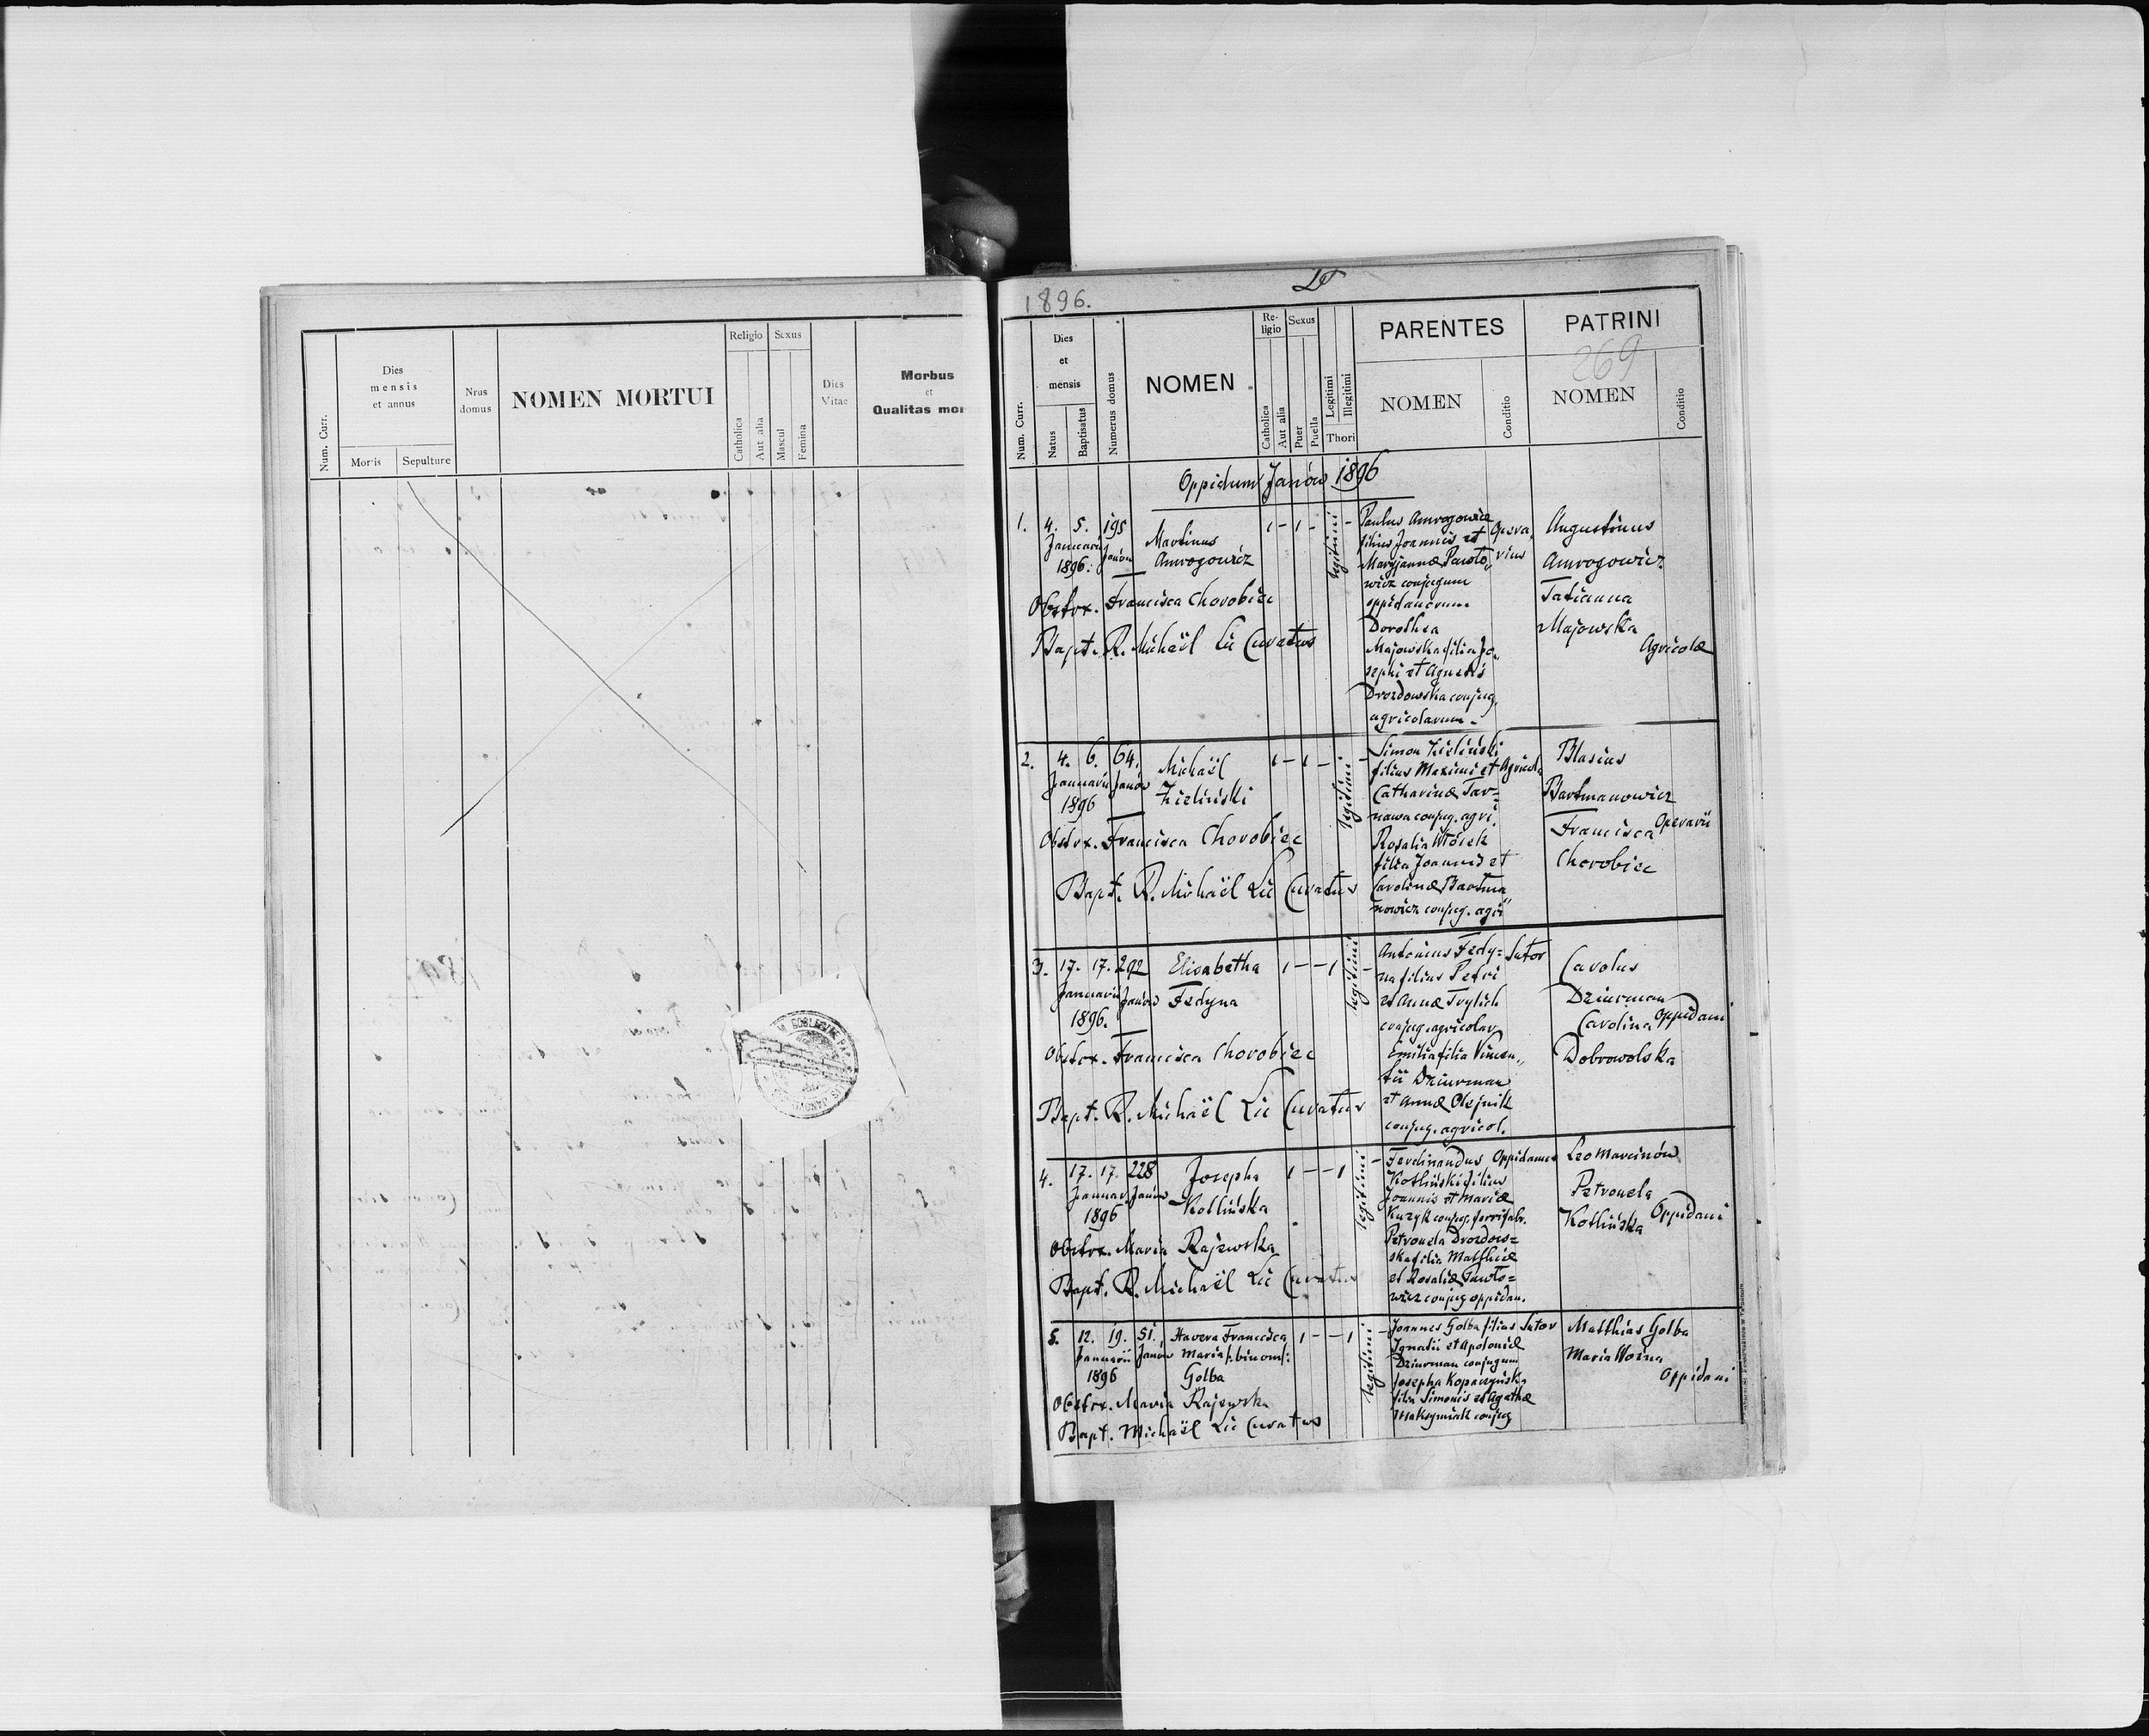 Num. Curr.
Dies
mensis
et annus
Mortis
Sepulture
Nrus
domus
NOMEN MORTUI
Religio
Catholica
Aut alia
Sexus
Mascul
Femina
Dies
Vitae
Morbus
et
Qualitas mor
1896.
Num. Curr.
Dies
et
mensis
Natus
Baptisatus
Numerus domus
NOMEN
Re-
ligio
Catholica
Aut alia
Sexus
Puer
Puella
Legitimi
Illegitimi
Thori
PARENTES
NOMEN
Conditio
PATRINI
269
NOMEN
Conditio
Oppidum Janów 1896
1. 4. 5. 195
Januarii Janów
1896.
Martinus
Amrogowicz
1 - 1 -
legitimi
Paulus Amrogowicz
filius Joannis et
Maryannæ Pawło
wicz conjugum
oppidanorum
Dorothea
Majowska filia Jo
sephi et Agnetis
Drozdowska conjug.
agricolarum
Opera
rius
Augustinus
Amrogowicz
Tatianna
Majowska
Agricolæ
Obstrx. Francisca Chorobiec
Bapt. R. Michaël Lic Curatus
2. 4. 6. 64.
Januarii Janów
1896
Michaël
Zieliński
1 - 1 -
legitimi
Simon Zieliński
filius Maximi et
Catharinæ Tar=
nawa conjug. agri.
Rosalia Wtórek
filia Joannis et
Carolinæ Bartma
nowicz conjug. agri
Agricola
Blasius
Bartmanowicz
Francisca
Chorobiec
Operarii
Obstrx. Francisca Chorobiec
Bapt. R. Michaël Lic Curatus
3. 17. 17. 292
Januarii Janów
1896.
Elisabetha
Fedyna
1 - - 1
legitimi
Antonius Fedy=
na filius Petri
et Annæ Trylich
conjug. agricolar.
Emilia filia Vincen
tii Dziurman
et Annæ Olejnik
conjug. agricol.
Sutor
Carolus
Dziurman
Carolina
Dobrowolska
Oppidani
Obstrx. Francisca Chorobiec
Bapt. R. Michaël Lic Curatus
4. 17. 17. 228
Januar. Janów
1896
Josepha
Kotlińska
1 - - 1
legitimi
Ferdinandus
Kotliński filius
Joannis et Mariæ
Kuzyk conjug.
Petronela Drozdow=
ska filia Matthiæ
et Rosaliæ Pawło=
wicz conjug oppidan.
Oppidanus
Leo Marcinów
Petronela
Kotlińska
Oppidani
Obstrx. Maria Rajewska
Bapt. R. Michaël Lic Curatus
5. 12. 19. 51.
Januarii Janów
1896
Francisca
Maria /:binom:/
Golba
1 - - 1
legitimi
Joannes Golba filius
Ignatii et Apoloniæ
Dziurman conjugum
Josepha Kopaczyńska
filia Simonis et Agathæ
Maksymiak conjug
Sutor
Matthias Golba
Maria Woźna
Oppidani
Obstrx. Maria Rajewska
Bapt. Michaël Lic Curatus